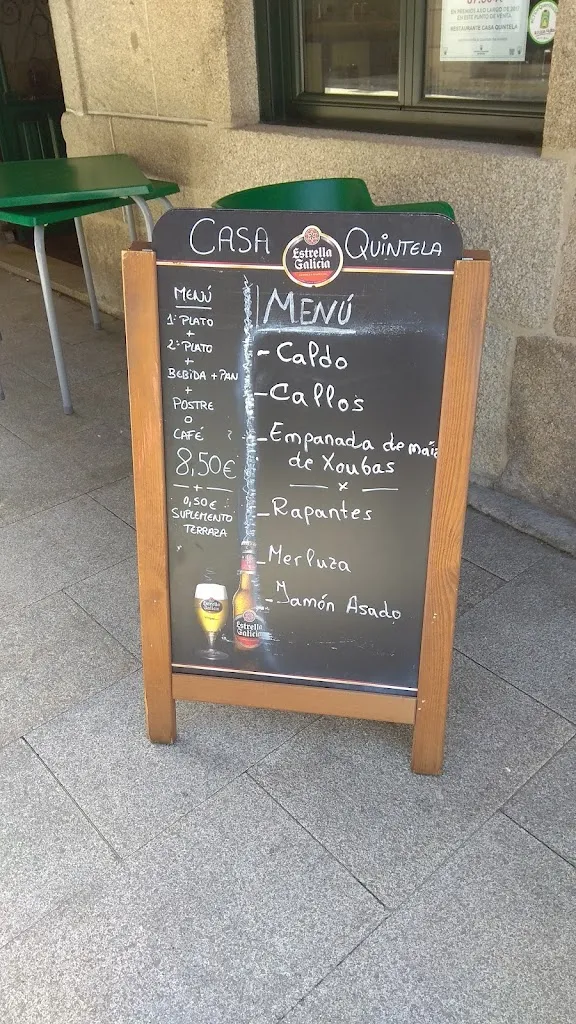 CASA QUINTELA
Estrella
Galicia
MENÚ
1º PLATO
+
2º PLATO
+
BEBIDA + PAN
+
POSTRE
O
CAFÉ
8,50€
+
0,50€
SUPLEMENTO
TERRAZA
MENÚ
- Caldo
- Callos
- Empanada de maíz
de Xoubas
x
- Rapantes
- Merluza
- Jamón Asado
Estrella
Galicia
EN PREMIOS A LO LARGO DE
EN ESTE PUNTO DE VENTA.
RESTAURANTE CASA QUINTELA